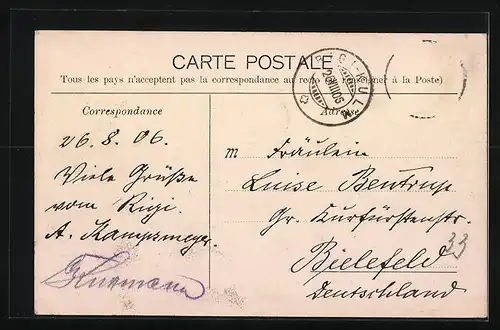 CARTE POSTALE
Tous les pays n'acceptent pas la correspondance au recto (à la Poste).
RIGI-KULM
26.VIII.06
Correspondance
Adresse
26.8.06.
Viele Grüße
vom Rigi.
A. Kampsmeyer.
m Fräulein
Luise Bentrup
Gr. Kurfürstenstr.
33
Bielefeld
Deutschland